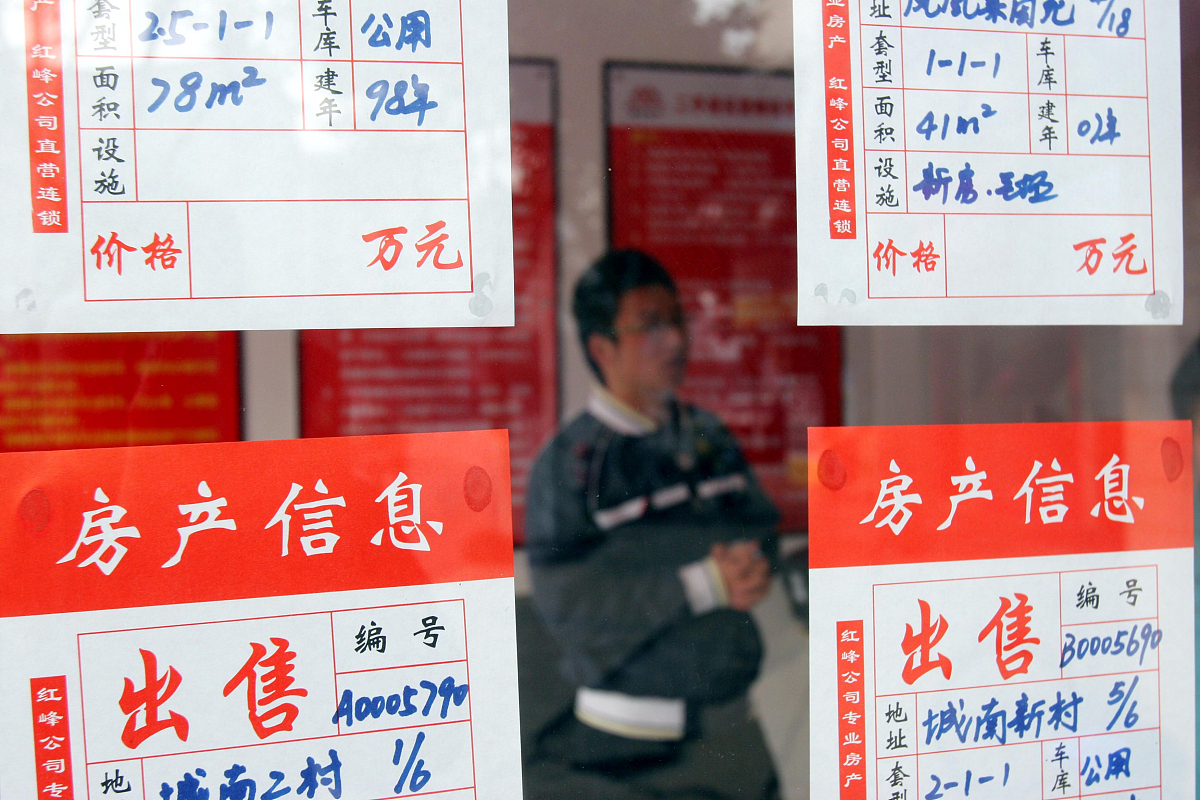 产 红峰公司直营连锁
套型 2.5-1-1 车库 公用
面积 78m² 建年 98年
设施
价格 万元
业房产 红峰公司直营连锁
址 4/18
套型 1-1-1 车库
面积 41m² 建年 02年
设施 新房.毛坯
价格 万元
房产信息
出售 编号
A0005790
红峰公司专
地 城南二村 1/6
房产信息
出售 编号
B0005690
红峰公司专业房产
地址 城南新村 5/6
套型 2-1-1 车库 公用